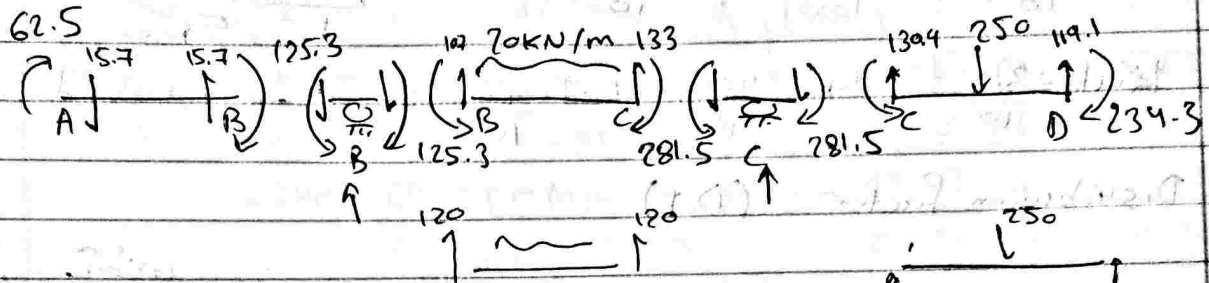 62.5
15.7 15.7 125.3 107 20KN/m 133 130.4 250 119.1
A B B C C D 234.3
B 125.3 281.5 C 281.5
120 120 250